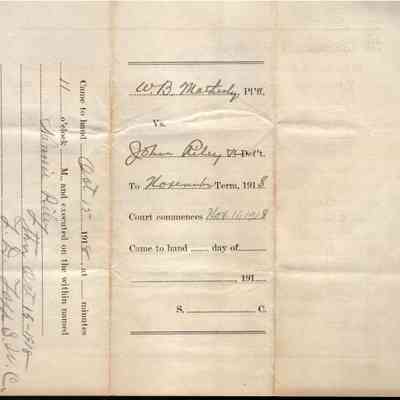 W. B. Matherly, Pl'ff.
Vs.
John Riley Def't.
To November Term, 1918
Court commences Nov. 11, 1918
Came to hand ____ day of ____
____, 191__
S. ____ C.
Came to hand Oct 15 1918, at ____ minutes
11 o'clock ____ M., and executed on the within named
Riley
Oct 16-1918
S. H. C.